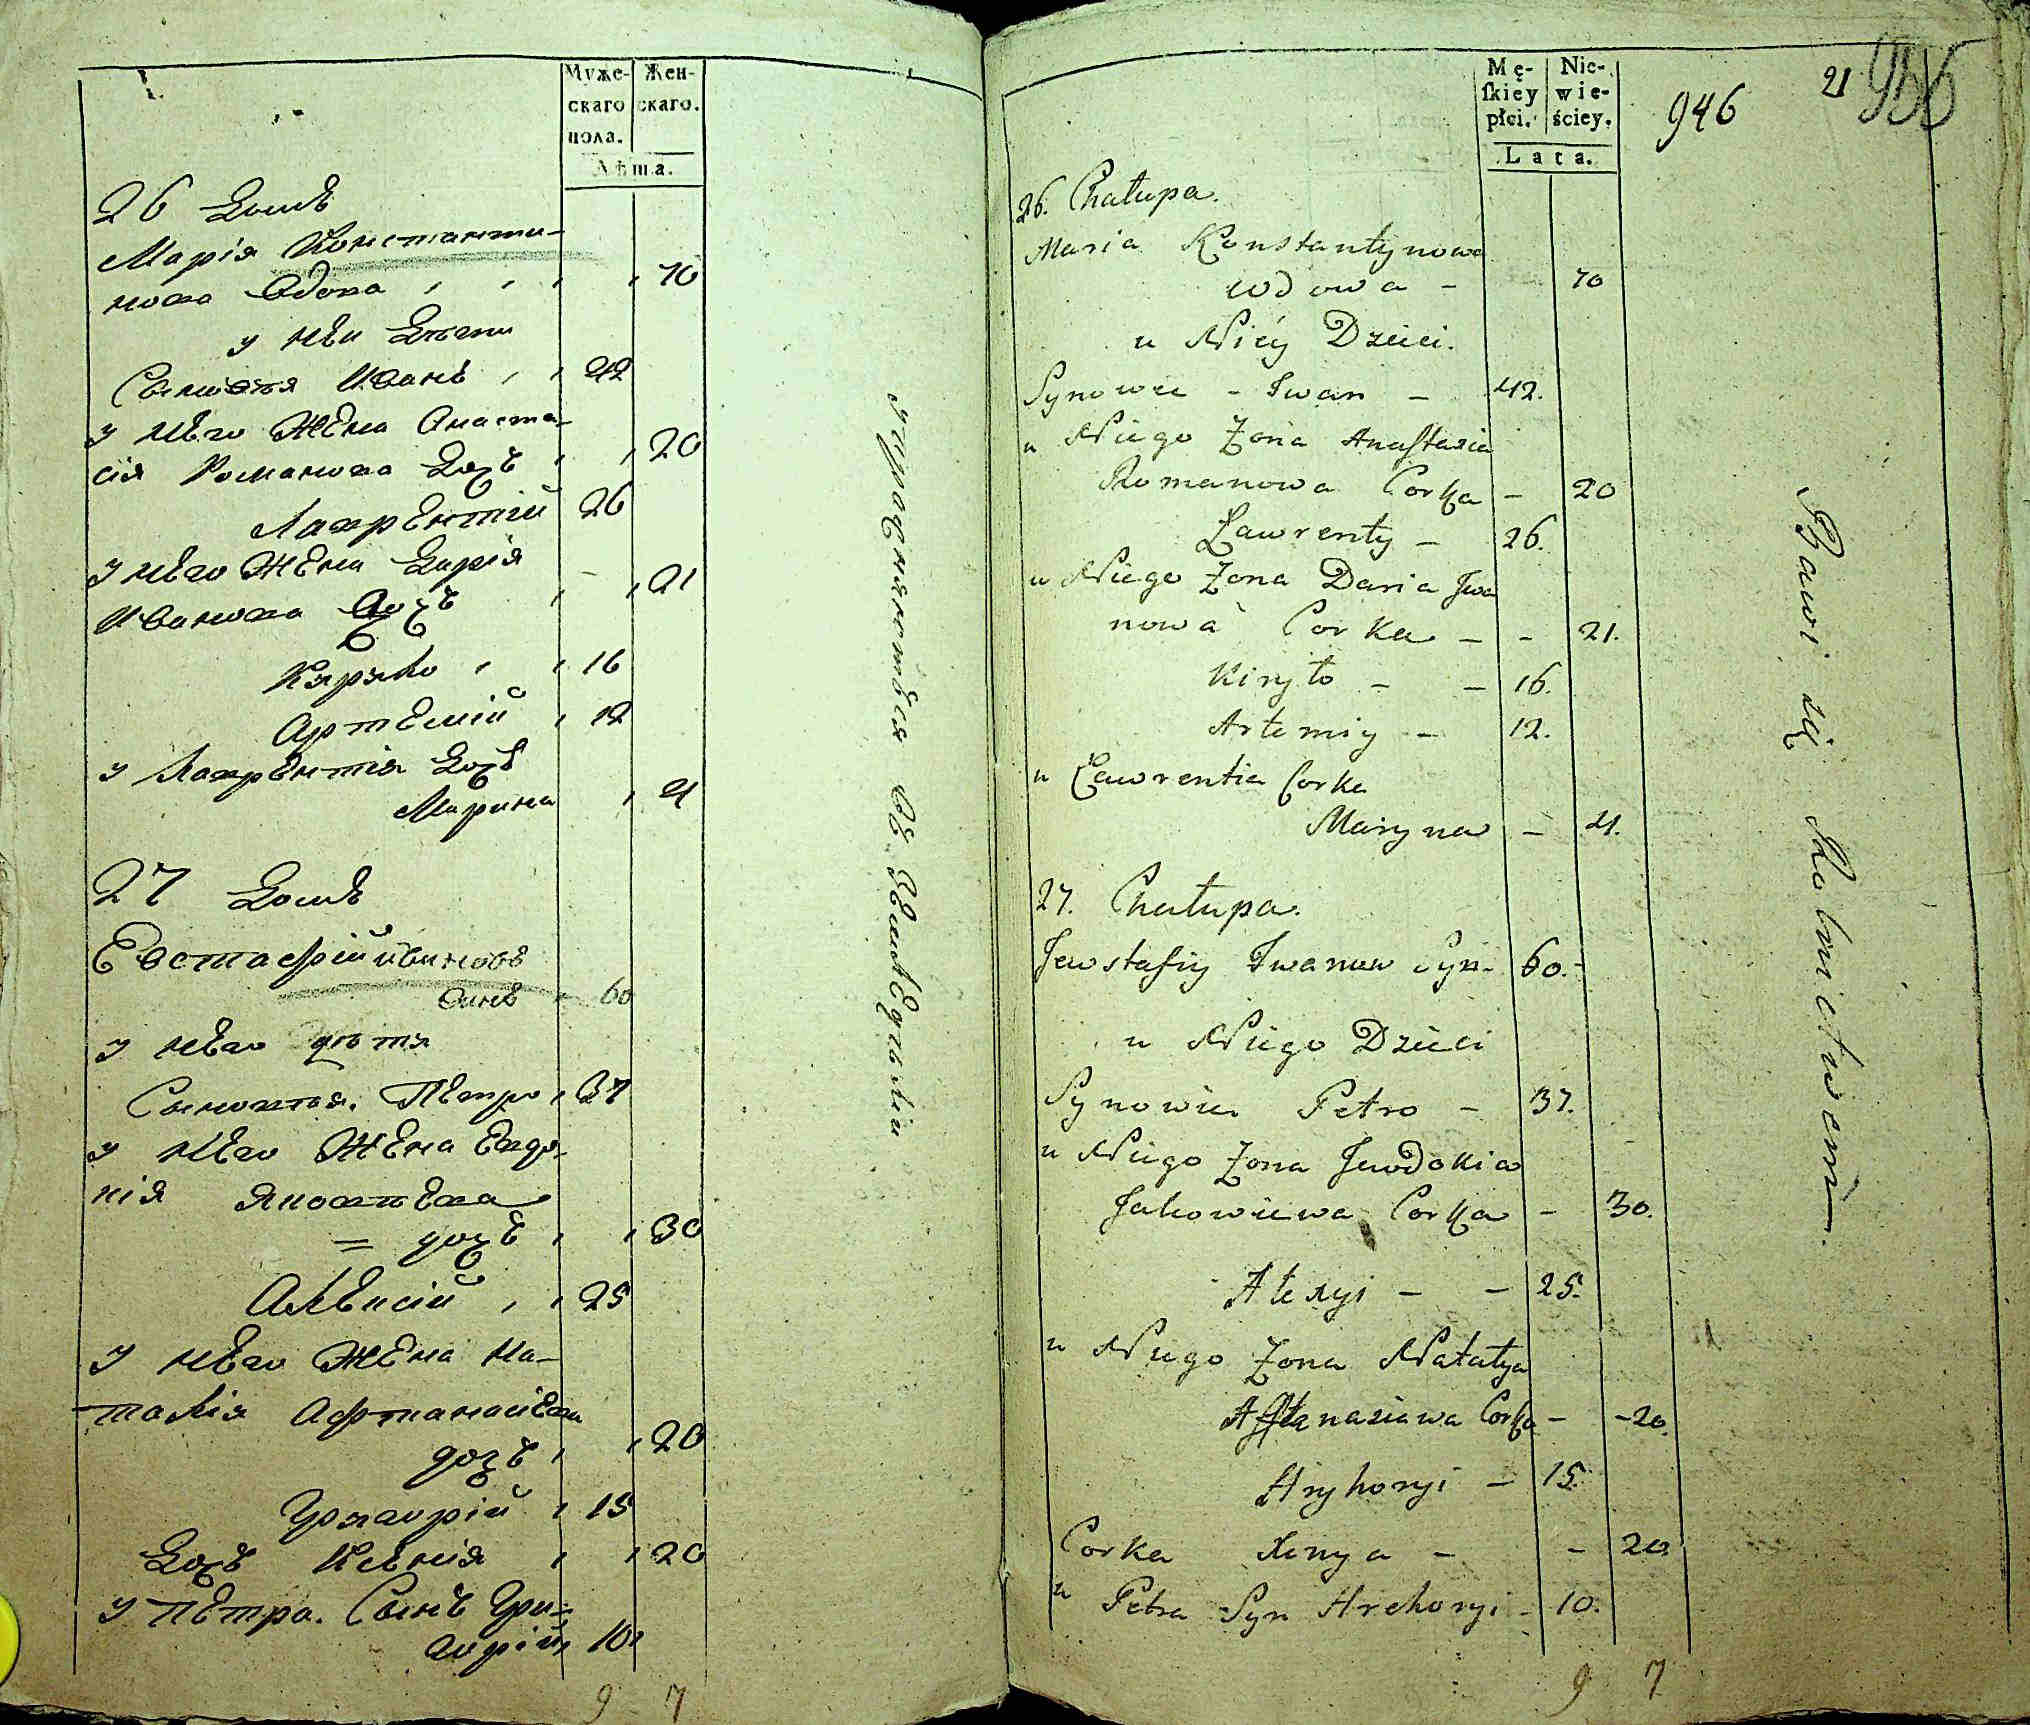 Муже-
скаго
пола.
Жен-
скаго.
Лѣта.
26 Домъ
Марія Константи-
нова вдова 70
у неи дѣти
Сыновья Иванъ 42
у него жена Анаста-
сія Романова дочь 20
Лаврентій 26
у него жена Дарія
Иванова дочь 21
Кирило 16
Артемій 12
у Лаврентія дочь
Марина 4
27 Домъ
Евстафій Ивановъ
сынъ 60
у него дѣти
Сыновья. Петро 37
у него жена Евдо-
кія Яковлева
= дочь 30
Алексій 25
у него жена На-
талія Афтанасіева
дочь 20
Григорій 15
дочь Ксенія 20
у Петра. Сынъ Гри=
горій 10
9 7
упражняются въ земледѣліи
Mę-
ſkiey
płci.
Nie-
wie-
ściey.
Lata.
946
21
956
26. Chałupa.
Maria Konstantynowa
wdowa - 70
u Niéy Dzieci.
Synowie - Iwan - 42.
u Niego Żona Anastasia
Romanowa Corka - 20
Ławrenty - 26.
u Niego Żona Daria Iwa
nowa Corka - - 21.
Kiryło - - 16.
Artemiy - 12.
u Ławrentia Corka
Maryna - 4.
27. Chałupa.
Jewstafiy Iwanow Syn - 60.
u Niego Dzieci
Synowie Petro - 37.
u Niego Żona Jewdokia
Jakowiewa Corka - 30.
Alexyi - - 25.
u Niego Żona Natalya
Aftanasiawa Corka - - 20.
Hryhoryi - 15.
Corka Xenya - - 20.
u Petra Syn Hrehoryi - 10.
9 7
Bawi się Rolnictwem.